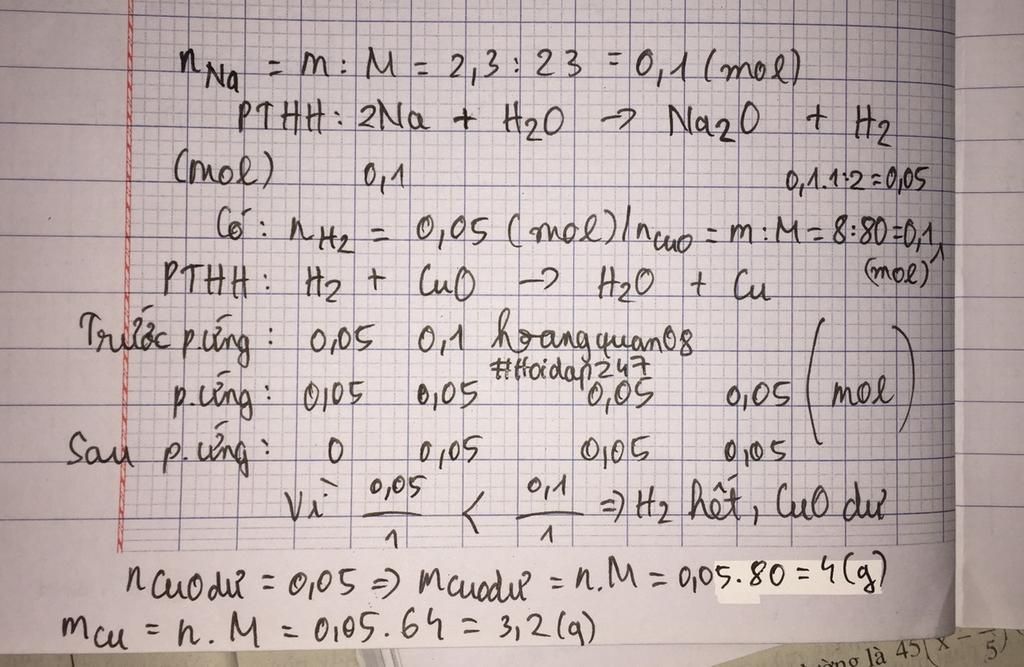 nNa = m : M = 2,3 : 23 = 0,1 (mol)
PTHH: 2Na + H2O → Na2O + H2
(mol) 0,1 0,1.1:2=0,05
Có: nH2 = 0,05 (mol) / nCuO = m : M = 8:80=0,1
(mol)
PTHH: H2 + CuO → H2O + Cu
Trước p.ứng: 0,05 0,1 hoangquan08
#Hoidap247
p.ứng: 0,05 0,05 0,05 0,05 (mol)
Sau p.ứng: 0 0,05 0,05 0,05
Vì 0,05/1 < 0,1/1 => H2 hết, CuO dư
nCuO dư = 0,05 => mCuO dư = n.M = 0,05.80 = 4(g)
mCu = n.M = 0,05.64 = 3,2(g)
là 45(x - /5)